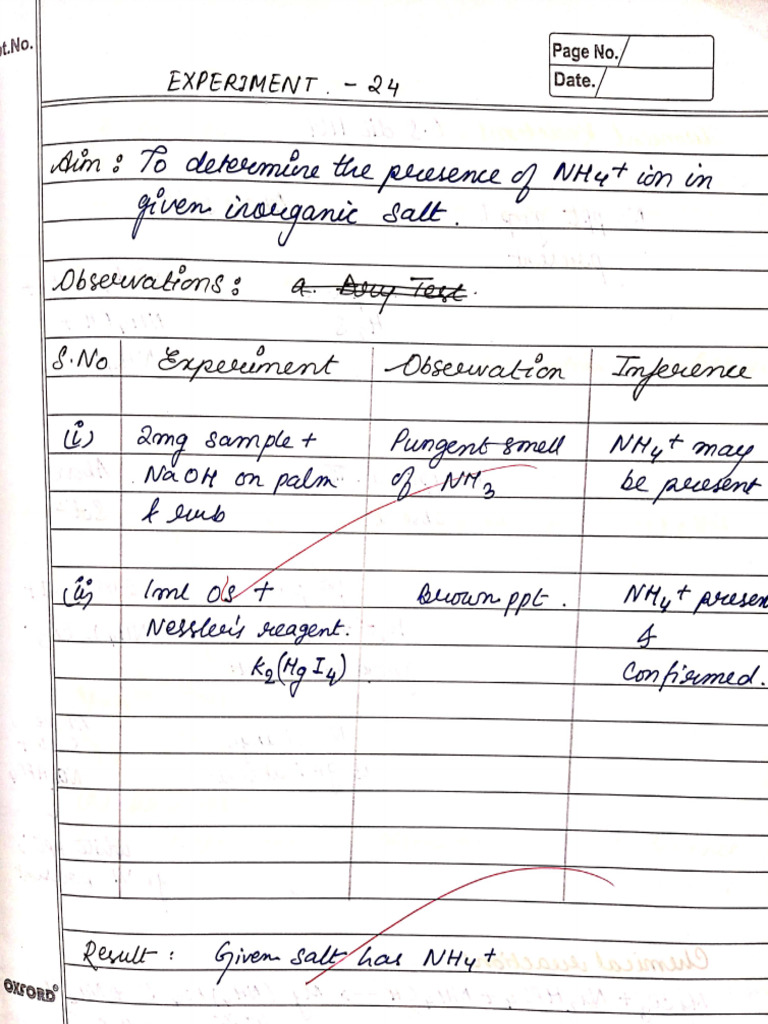 pt.No.
Page No.
Date.
EXPERIMENT. - 24
Aim : To determine the presence of NH4+ ion in
given inorganic salt.
Observations : a. Dry Test.
S.No Experiment Observation Inference
(i) 2mg sample + Pungent smell NH4+ may
NaOH on palm of NH3 be present
& rub
(ii) 1ml O's + Brown ppt. NH4+ presen
Nessler's reagent. &
K2(HgI4) Confirmed.
Result : Given salt has NH4+
OXFORD